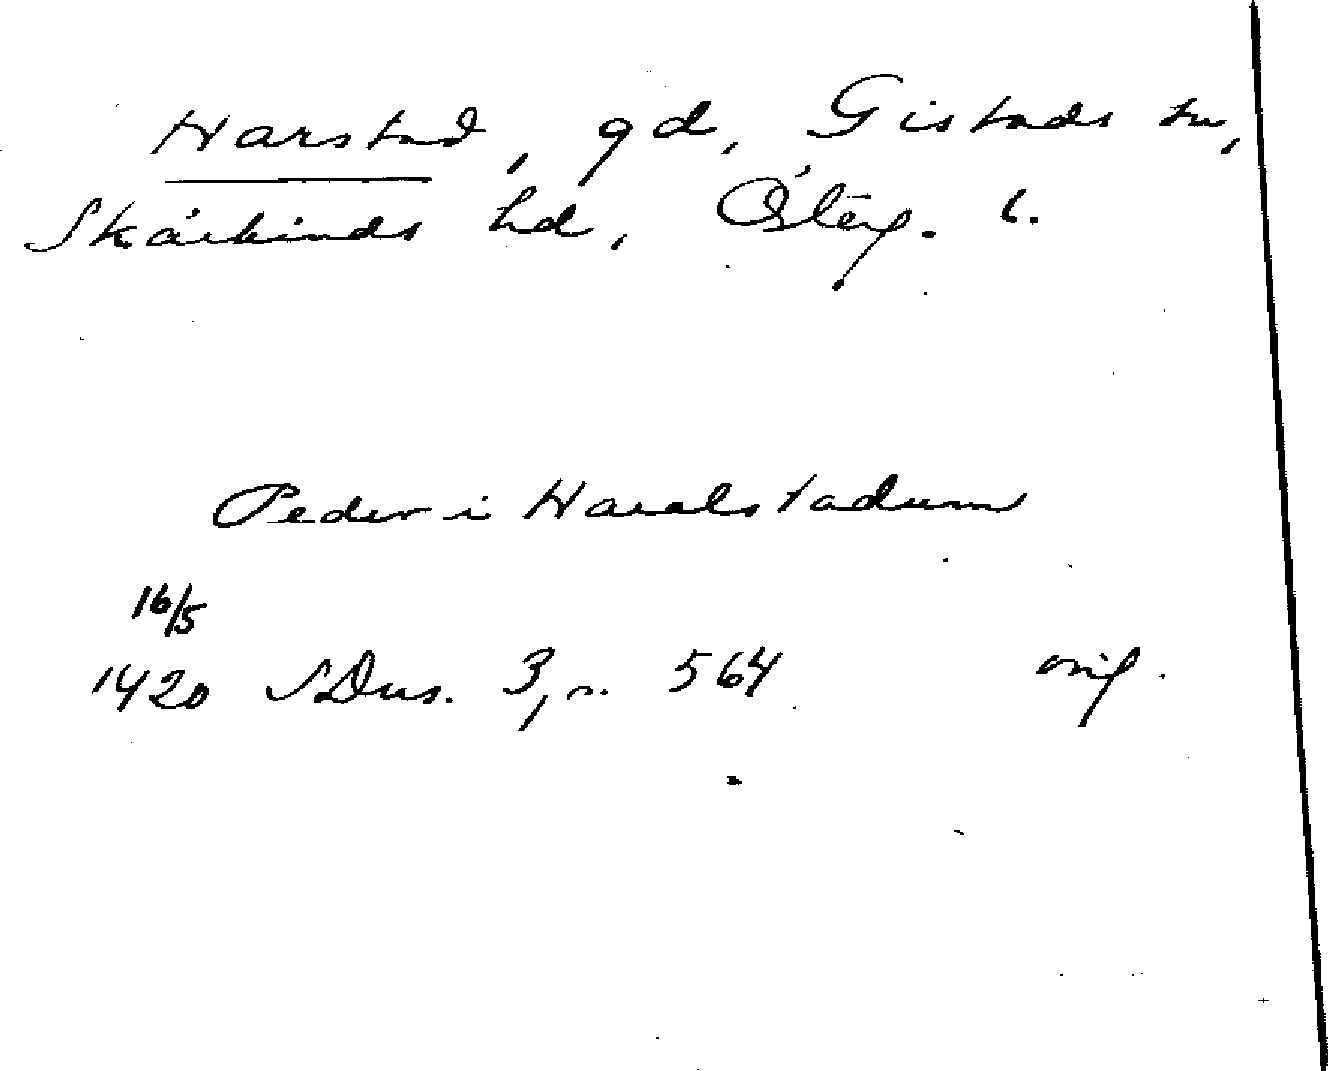 Harstad, gd, Gistads sn,
Skärkinds hd, Österg. l.
Peder i Haralstadum
16/5
1420 SDns. 3, n. 564 orig.